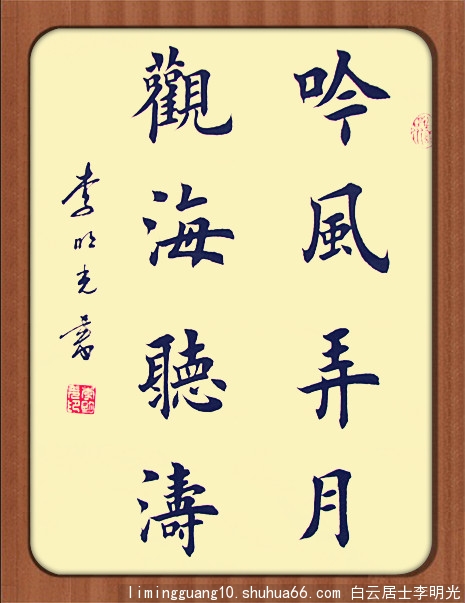 吟風弄月
觀海聽濤
李明光書
limingguang10.shuhua66.com 白云居士李明光